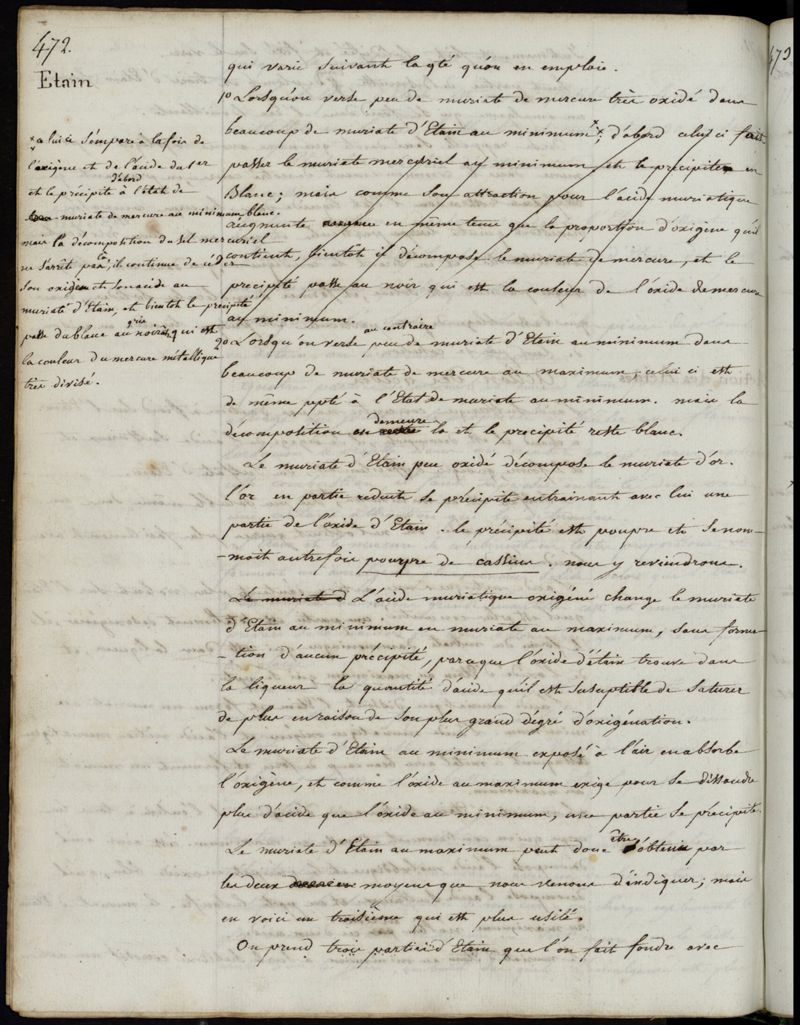 472.
Etain
qui varie suivant la qté qu'on en emploie.
1º Lorsqu'on verse peu de muriate de mercure très oxidé dans
beaucoup de muriate d'Etain au minimum x; d'abord celui ci fait
passer le muriate mercuriel au minimum et le précipite en
Blanc; mais comme son attraction pour l'acide muriatique
augmente en même tems que la proportion d'oxigène qu'il
contient, bientôt il décompose le muriate de mercure, et le
precipité passe au noir qui est la couleur de l'oxide de mercure
au minimum.
x celui ci s'empare à la fois de
l'oxigène et de l'acide du 1er
et le précipite d'abord à l'état de
muriate de mercure au minimum blanc.
mais la décomposition du sel mercuriel
ne s'arrête pas là, il continue de céder
son oxigène et son acide au
muriate d'Etain, et bientôt le precipité
passe du blanc au gris noirâtre, qui est
la couleur du mercure métallique
très divisé.
2º Lorsqu'on verse au contraire peu de muriate d'Etain au minimum dans
beaucoup de muriate de mercure au maximum, celui ci est
de même ppté à l'Etat de muriate au minimum. mais la
décomposition en demeure la et le precipité reste blanc.
Le muriate d'Etain peu oxidé décompose le muriate d'or.
l'or en partie reduite se précipite entrainant avec lui une
partie de l'oxide d'Etain. le précipité est pourpre et se nom-
-moit autrefois pourpre de cassius. nous y reviendrons.
Le muriate d L'acide muriatique oxigéné change le muriate
d'Etain au minimum en muriate au maximum, sans forma-
-tion d'aucun précipité, parceque l'oxide d'étain trouve dans
la liqueur la quantité d'acide qu'il est susceptible de saturer
de plus en raison de son plus grand dégré d'oxigénation.
Le muriate d'Etain au minimum exposé à l'air en absorbe
l'oxigène, et comme l'oxide au maximum exige pour se dissoudre
plus d'acide que l'oxide au minimum, une partie se précipite.
Le muriate d'Etain au maximum peut donc être obtenu par
les deux moyens que nous venons d'indiquer; mais
en voici un troisième qui est plus usité.
On prend trois parties d'Etain que l'on fait fondre avec